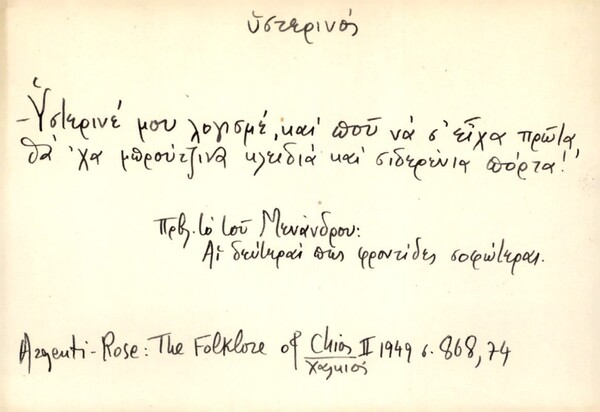 ὑστερινός
- Ὑστερινέ μου λογισμέ, καὶ ποῦ νά σ' εἶχα πρῶτα,
θά 'χα μπρούτζινα κλειδιά καὶ σιδερένια πόρτα!
Πρβλ. τό τοῦ Μενάνδρου:
Αἱ δεύτεραί πως φροντίδες σοφώτεραι.
Argenti - Rose: The Folklore of Chios II 1949 σ. 868, 74
Χαλκιός